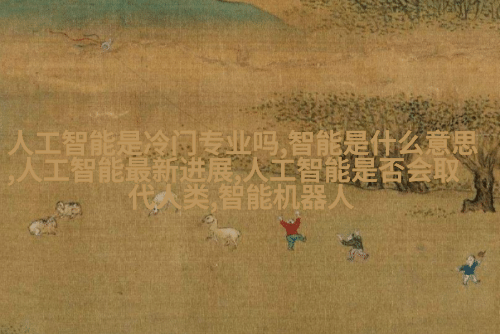 人工智能是冷门专业吗,智能是什么意思
,人工智能最新进展,人工智能是否会取
代人类,智能机器人